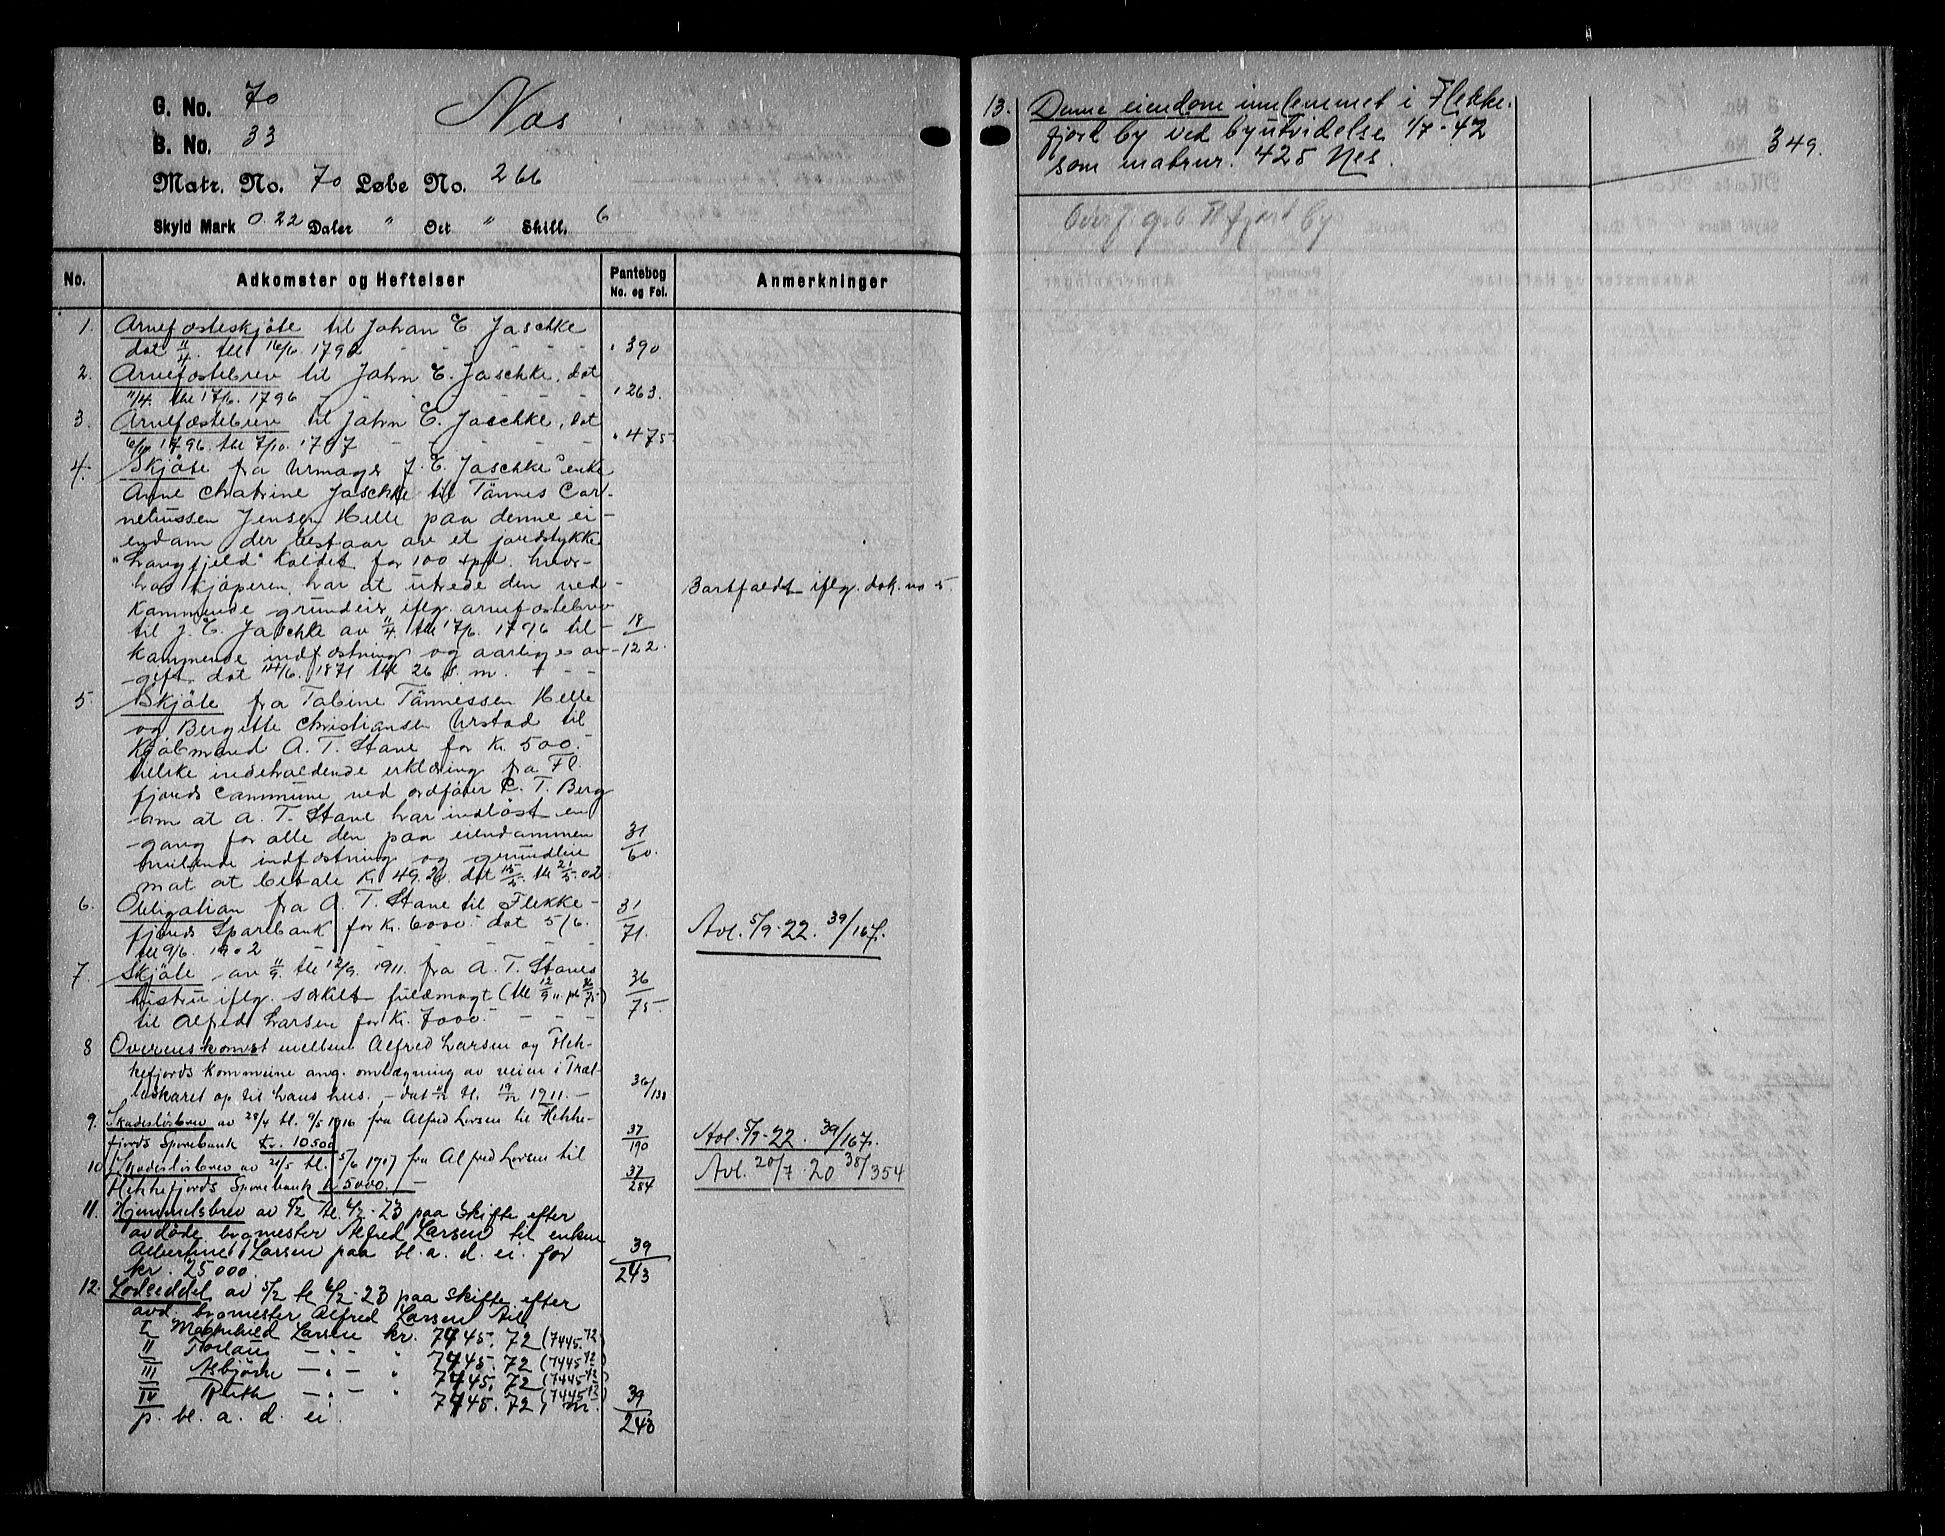 G. No. 70
Nøs
B. No. 33
Matr. No. 70 Løbe No. 266
Skyld Mark 0.22 Daler " Ort " Skill. 6
No. Adkomster og Heftelser Pantebog No. og Fol. Anmerkninger
1. Arvefæsteskjöte til Johan E Jaschke
dat 11/4. tl. 1796 - 390
2. Arvefæstebrev til Johan E. Jaschke, dat
11/4. tl. 17/6. 1796 - 263.
3. Arvefæstebrev til Johan E. Jaschke, dat
6/10 1796. tl. 7/10. 1797 - 475
4. Skjöte fra Urmager J. E. Jaschkes enke
Anne Chatrine Jaschke til Tönnes Cor-
neliussen Jensen Helle paa denne ei-
endom der bestaar av et jordstykke
"Langfjeld" kaldet for 100 spd. hvor-
hos kjöperen har at utrede den ved-
kommende grundeier iflg. arvefæstebrev
til J. E. Jaschke av 11/4. tl. 17/6. 1796 til-
kommende indfæstning og aarlige av-
gift. dat 14/6. 1871 tl. 26 s. m. - 18/122.
Bortfaldt iflg. dok. no 5
5. Skjöte fra Tobine Tönnessen Helle
og Bergitte Christiansen Urstad til
Kjöbmand A. T. Stane for Kr. 500.-
hvilke indeholdende erklæring fra Fl.
fjords Commune ved ordförer C. T. Berg
om at A. T. Stane har indlöst en
gang for alle den paa eiendommen
hvilende indfæstning og grundleie
mot at betale Kr. 49.20. dat 15/5. tl. 21/5.02. 31/60.
6. Obligation fra A. T. Stane til Flekke-
fjords Sparebank for Kr. 6000.- dat 5/6.
tl. 9/6. 1902 - 31/71.
Avl. 5/9-22. 39/167.
7. Skjöte av 11/9. tl. 12/9. 1911. fra A. T. Stanes
hustru iflg. særskilt fuldmagt (tl. 12/9 11. pb. 36/75)
til Alfred Larsen for Kr. 7000.- 36/75
8 Overenskomst mellem Alfred Larsen og Flek-
kefjords Kommune ang. omlægning av veien i Træl-
leskaret op til hans hus. - dat tl. 19/12 1911. - 36/138
9. Skadeslösbrev av 28/4 tl. 9/5 1916 fra Alfred Larsen til Flekke-
fjords Sparebank Kr. 10500 37/190
Avl. 5/9-22. 39/167.
10. Skadeslösbrev av 21/5 tl. 5/6 1917 fra Alfred Larsen til
Flekkefjords Sparebank kr 5000. - 37/284
Avl. 20/7-20 38/354
11. Hjemmelsbrev av 5/2 tl. 6/2-23 paa skifte efter
avdöde bromester Alfred Larsen til enken
Albertine Larsen paa bl. a. d. ei. for
kr. 25000. 39/243
12. Lodseddel av 5/2 tl. 6/2-23 paa skifte efter
avd. bromester Alfred Larsen til
I Magnhild Larsen kr. 7445.72 (7445.72
II Torlaug - " - " 7445.72 (7445.72
III Asbjörn - " - " 7445.72 (7445.72
IV Ruth - " - " 7445.72, (7445.72)
p. bl. a. d. ei. 39/243
13. Denne eiendom innlemmet i Flekke-
fjord by ved byutvidelse 1/7-42
som matrnr. 425 Nes. 349.
Overf. grb. Fl.fjord by